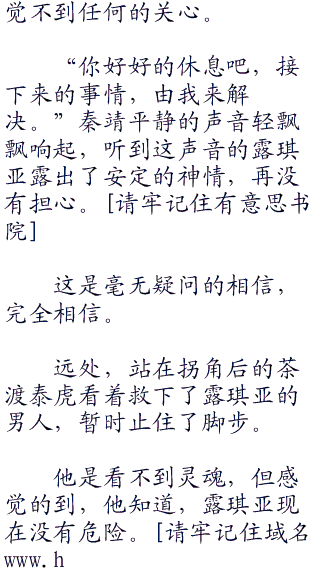 觉不到任何的关心。
“你好好的休息吧，接
下来的事情，由我来解
决。”秦靖平静的声音轻飘
飘响起，听到这声音的露琪
亚露出了安定的神情，再没
有担心。[请牢记住有意思书
院]
这是毫无疑问的相信，
完全相信。
远处，站在拐角后的茶
渡泰虎看着救下了露琪亚的
男人，暂时止住了脚步。
他是看不到灵魂，但感
觉的到，他知道，露琪亚现
在没有危险。[请牢记住域名
www.h